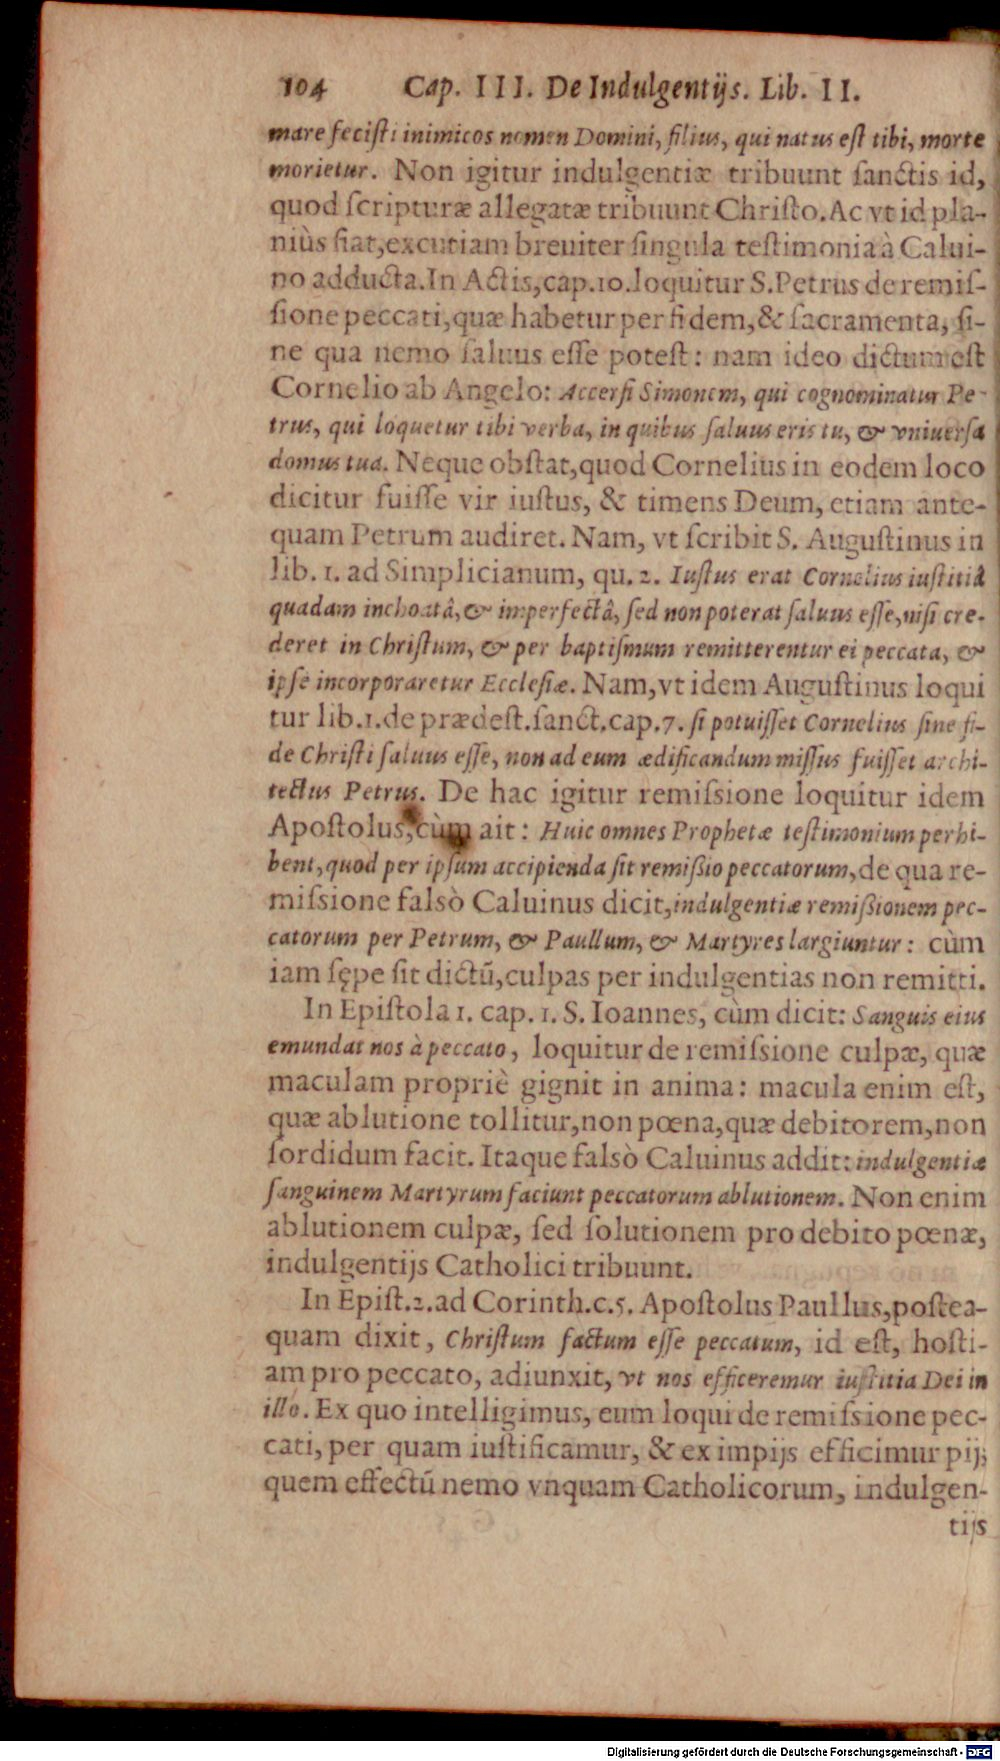 104 Cap. III. De Indulgentijs. Lib. II.
mare fecisti inimicos nomen Domini, filius, qui natus est tibi, morte
morietur. Non igitur indulgentiæ tribuunt ſanctis id,
quod ſcripturæ allegatæ tribuunt Chriſto. Ac vt id pla-
niùs fiat, excutiam breuiter ſingula teſtimonia à Calui-
no adducta. In Actis, cap. 10. loquitur S. Petrus de remiſ-
ſione peccati, quæ habetur per fidem, & ſacramenta, ſi-
ne qua nemo ſaluus eſſe poteſt: nam ideo dictum eſt
Cornelio ab Angelo: Accerſi Simonem, qui cognominatur Pe-
trus, qui loquetur tibi verba, in quibus ſaluus eris tu, & vniuerſa
domus tua. Neque obſtat, quod Cornelius in eodem loco
dicitur fuiſſe vir iuſtus, & timens Deum, etiam ante-
quam Petrum audiret. Nam, vt ſcribit S. Auguſtinus in
lib. 1. ad Simplicianum, qu. 2. Iuſtus erat Cornelius iuſtitiâ
quadam inchoatâ, & imperfectâ, ſed non poterat ſaluus eſſe, niſi cre-
deret in Chriſtum, & per baptiſmum remitterentur ei peccata, &
ipſe incorporaretur Eccleſiæ. Nam, vt idem Auguſtinus loqui
tur lib. 1. de prædeſt. ſanct. cap. 7. ſi potuiſſet Cornelius ſine fi-
de Chriſti ſaluus eſſe, non ad eum ædificandum miſſus fuiſſet archi-
tectus Petrus. De hac igitur remiſsione loquitur idem
Apoſtolus, cùm ait: Huic omnes Prophetæ teſtimonium perhi-
bent, quod per ipſum accipienda ſit remißio peccatorum, de qua re-
miſsione falsò Caluinus dicit, indulgentiæ remißionem pec-
catorum per Petrum, & Paullum, & Martyres largiuntur: cùm
iam ſępe ſit dictū, culpas per indulgentias non remitti.
In Epiſtola 1. cap. 1. S. Ioannes, cùm dicit: Sanguis eius
emundat nos à peccato, loquitur de remiſsione culpæ, quæ
maculam propriè gignit in anima: macula enim eſt,
quæ ablutione tollitur, non pœna, quæ debitorem, non
ſordidum facit. Itaque falsò Caluinus addit: indulgentiæ
ſanguinem Martyrum faciunt peccatorum ablutionem. Non enim
ablutionem culpæ, ſed ſolutionem pro debito pœnæ,
indulgentijs Catholici tribuunt.
In Epiſt. 2. ad Corinth. c. 5. Apoſtolus Paullus, poſtea-
quam dixit, Chriſtum factum eſſe peccatum, id eſt, hoſti-
am pro peccato, adiunxit, vt nos efficeremur iuſtitia Dei in
illo. Ex quo intelligimus, eum loqui de remiſsione pec-
cati, per quam iuſtificamur, & ex impijs efficimur pij;
quem effectū nemo vnquam Catholicorum, indulgen-
tijs
Digitalisierung gefördert durch die Deutsche Forschungsgemeinschaft - DFG